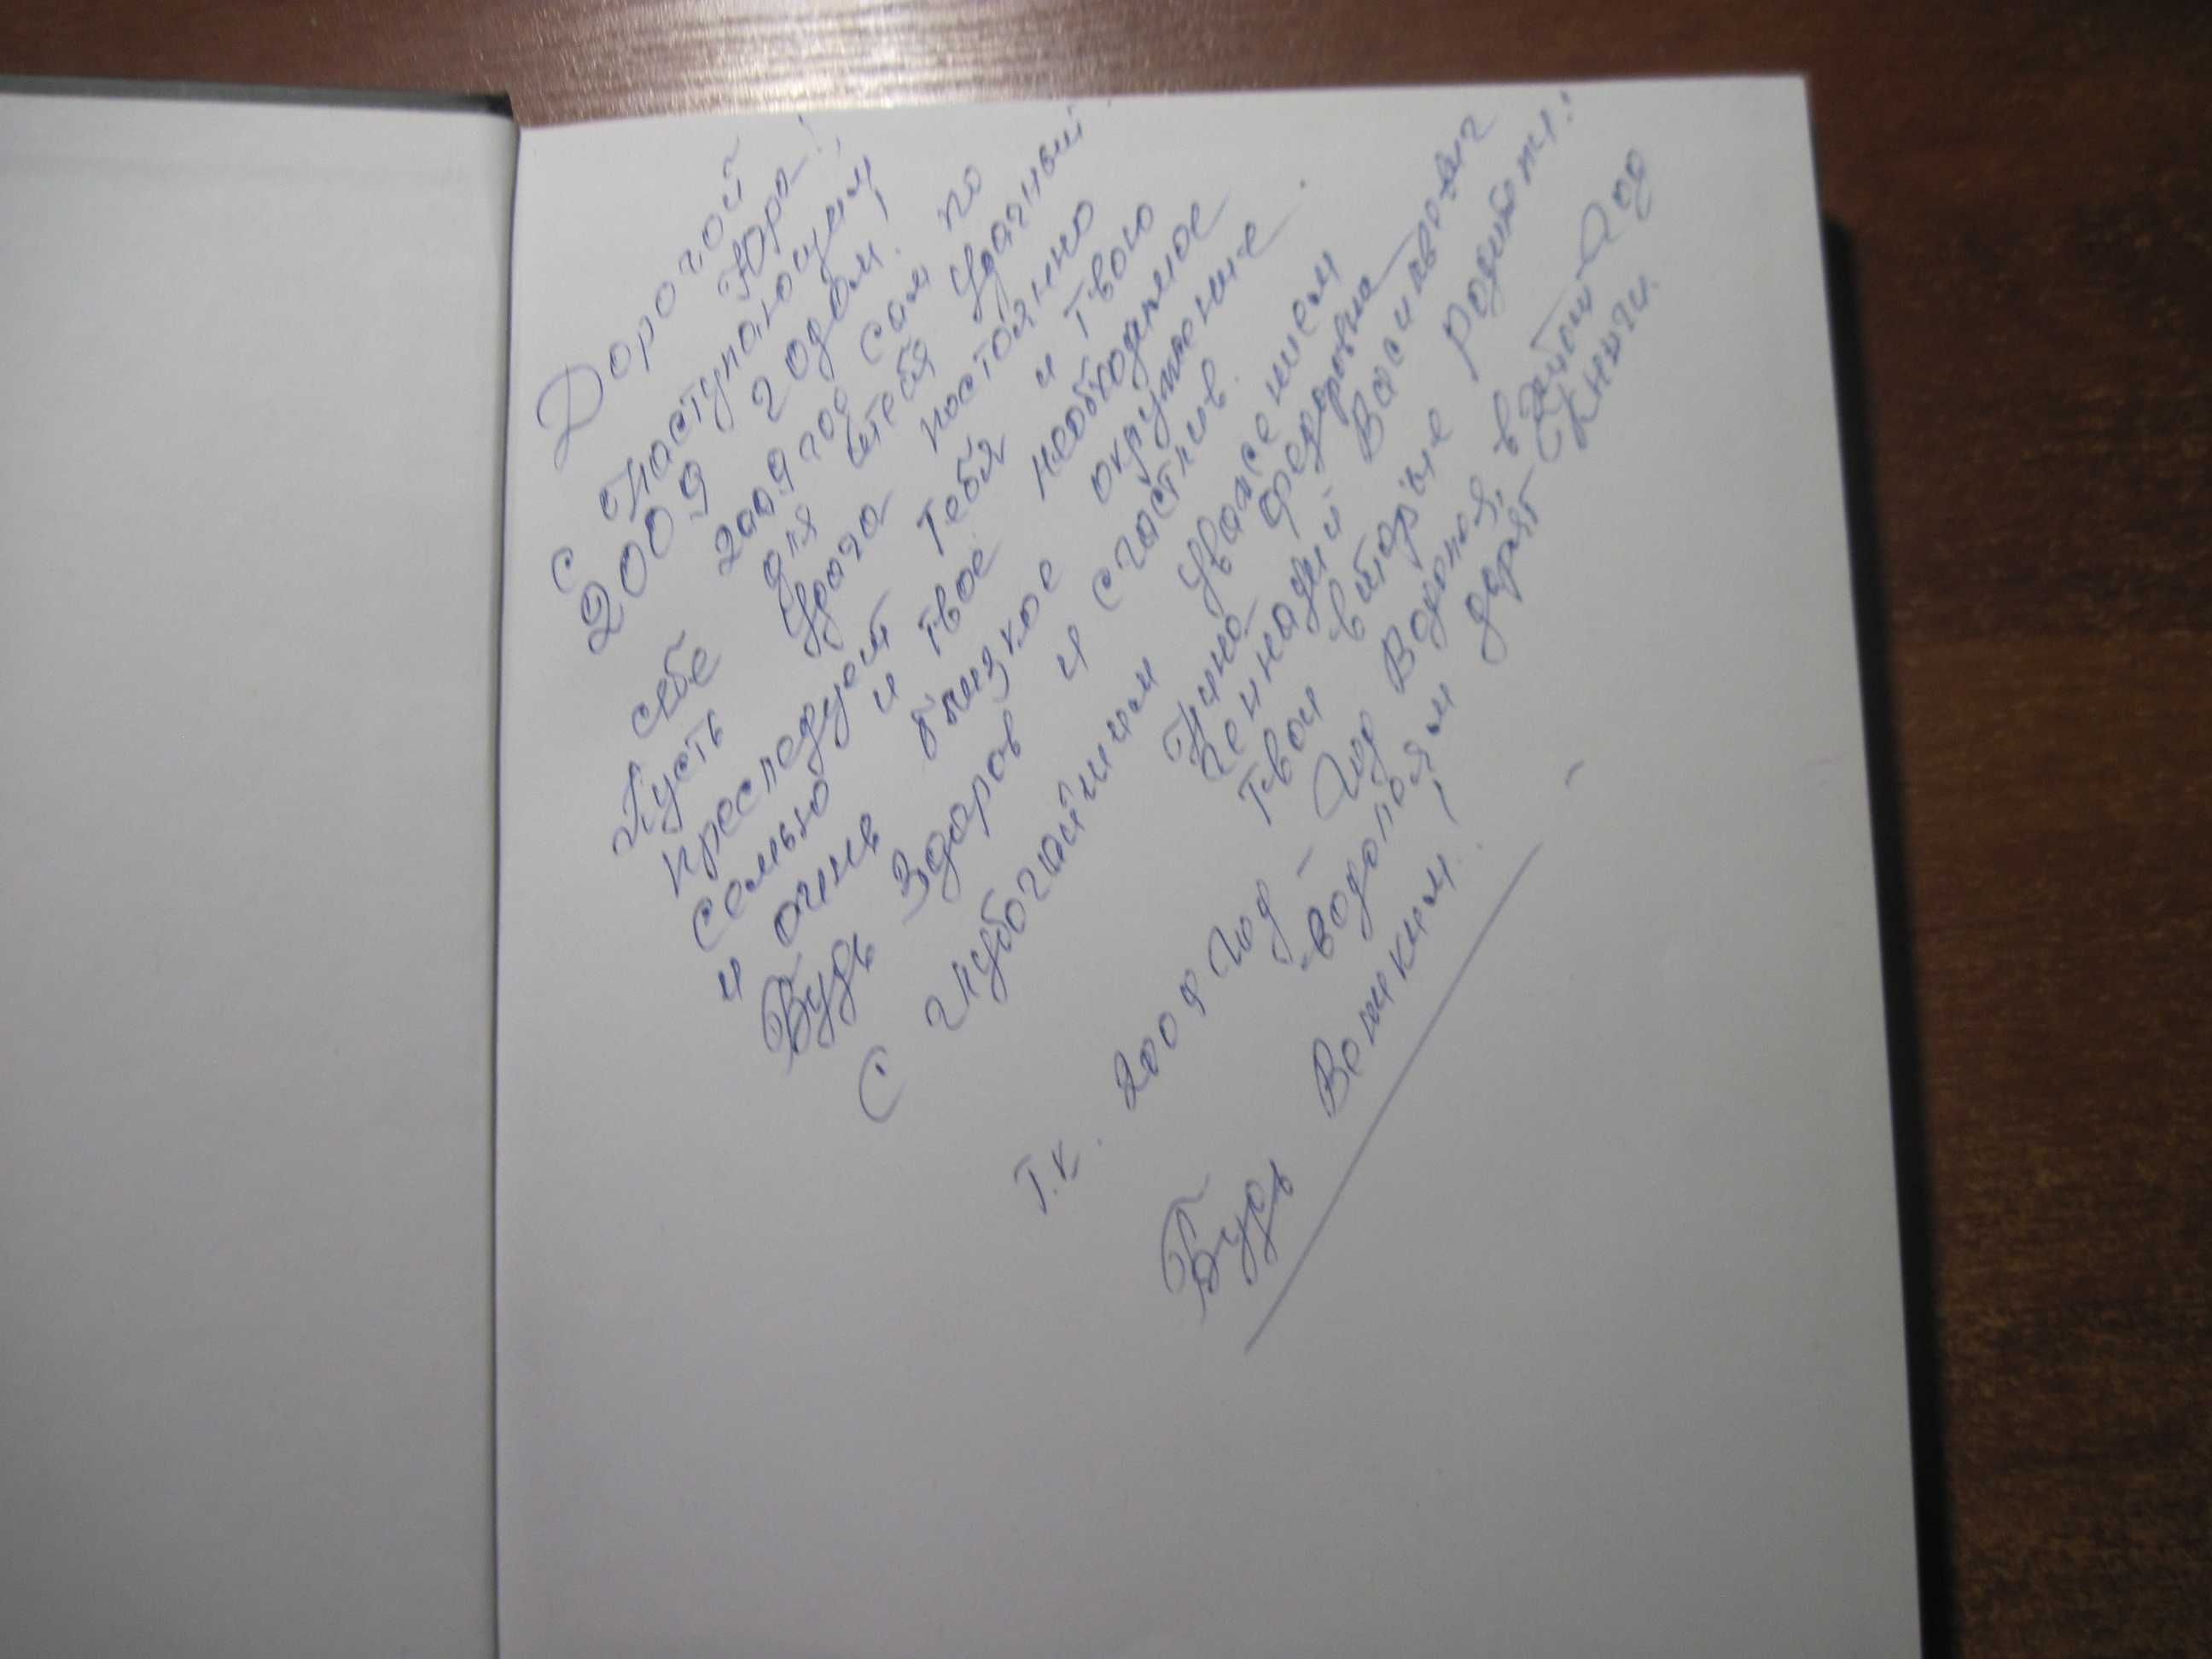 Дорогой
Юра!
С наступающим
2009 годом!
2009 год сам по
себе для тебя удачный
Пусть удача постоянно
преследует Тебя и Твою
семью и твое необходимое
и очень близкое окружение.
Будь здоров и счастлив.
С глубочайшим уважением
Нина Федоровна
Геннадий Васильевич
Твои вторые родители!
Т.к. 2009 год – год Водолея, в этот год
водолеям дарят книги.
Будь Великим!